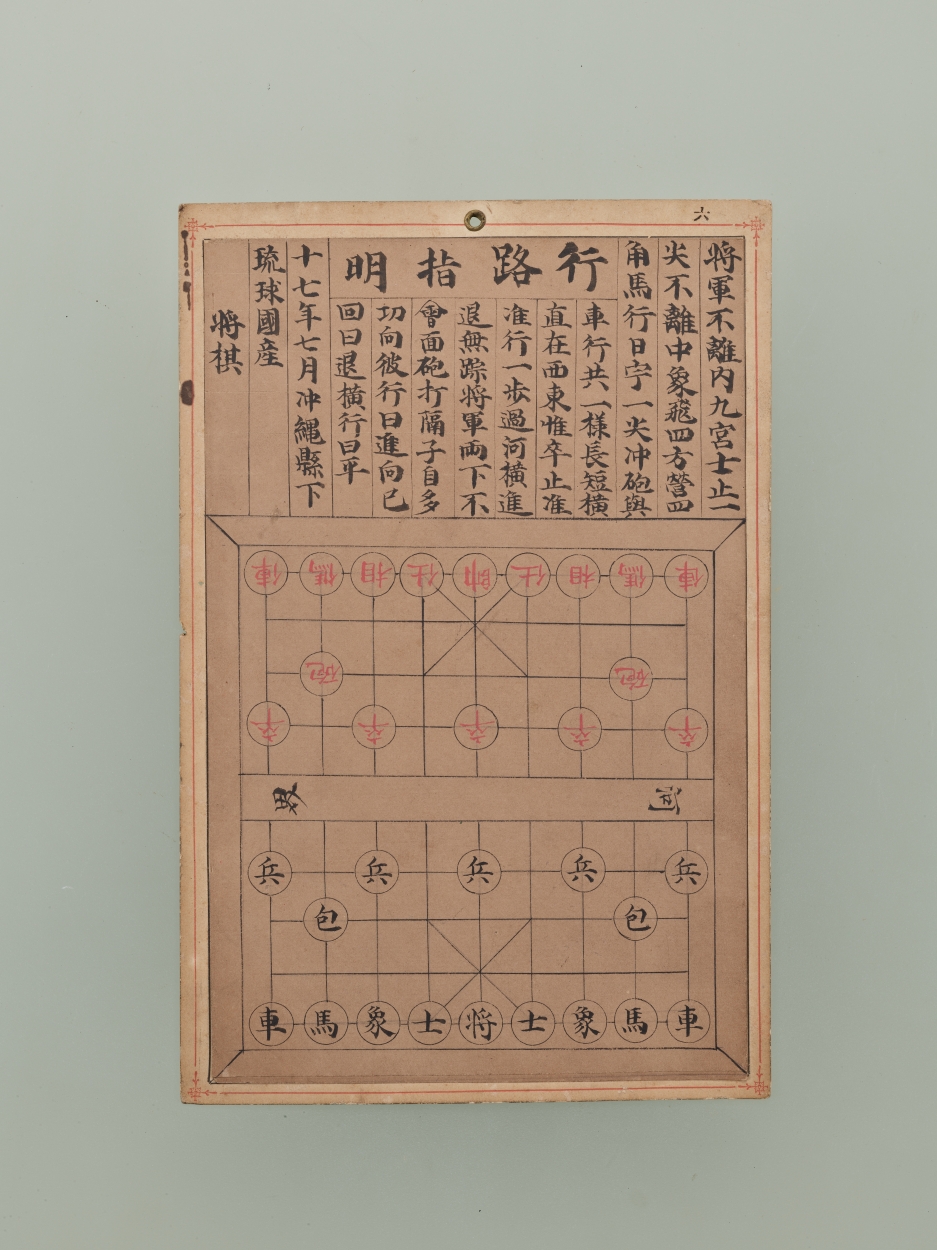 六
行路指明
将軍不離内九宮士止一
尖不離中象飛四方営四
角馬行日字一尖冲砲與
車行共一様長短横
直在西東惟卒止准
准行一歩過河横進
退無踪将軍両下不
會面砲打隔子自多
功向彼行曰進向己
回曰退横行曰平
十七年七月冲縄縣下
琉球國産
将棋
俥 傌 相 仕 帥 仕 相 傌 俥
砲 砲
卒 卒 卒 卒 卒
界 河
兵 兵 兵 兵 兵
包 包
車 馬 象 士 将 士 象 馬 車